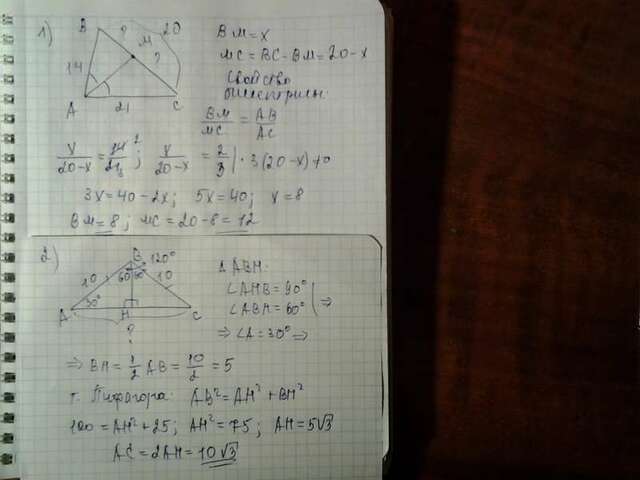 1)
B ? 20
M ?
14
A 21 C
BM = x
MC = BC - BM = 20 - x
Свойство
биссектрисы:
BM/MC = AB/AC
x/(20-x) = 14/21; x/(20-x) = 2/3 | · 3(20-x) ≠ 0
3x = 40 - 2x; 5x = 40; x = 8
BM = 8; MC = 20 - 8 = 12
2)
B 120°
10 60° 60° 10
A 30° H C
?
Δ ABH:
∠AHB = 90°
∠ABH = 60° ⇒
⇒ ∠A = 30° ⇒
⇒ BH = 1/2 AB = 10/2 = 5
т. Пифагора: AB² = AH² + BH²
100 = AH² + 25; AH² = 75; AH = 5√3
AC = 2AH = 10√3